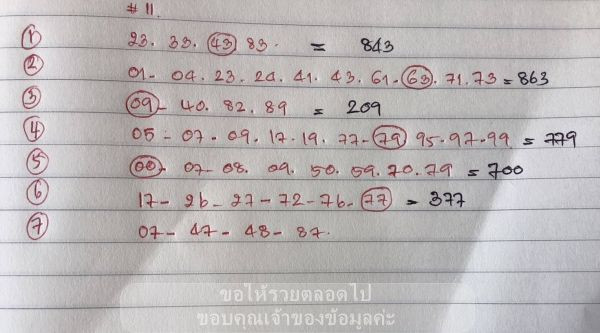 # 11.
① 23. 33. 43 83. = 843
② 01- 04. 23. 24. 41. 43. 61- 63. 71. 73 = 863
③ 09- 40. 82. 89 = 209
④ 05 - 07 - 09. 17. 19. 77- 79 95-97-99 = 779
⑤ 00- 07- 08. 09. 50. 59. 70. 79 = 700
⑥ 17- 26- 27- 72- 76- 77 = 377
⑦ 07- 47- 48- 87.
ขอให้รวยตลอดไป
ขอบคุณเจ้าของข้อมูลค่ะ